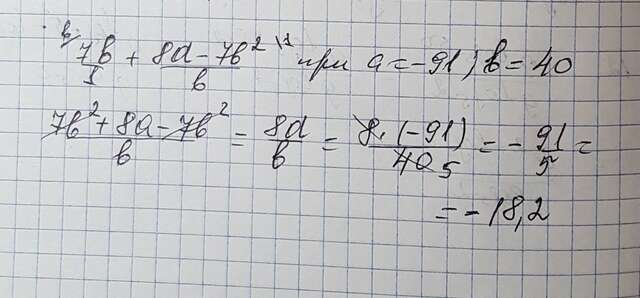 b\ 7b/1 + (8a - 7b²)/b \1 при a = -91; b = 40
(7b² + 8a - 7b²)/b = 8a/b = 8·(-91)/40 5 = -91/5 =
= -18,2